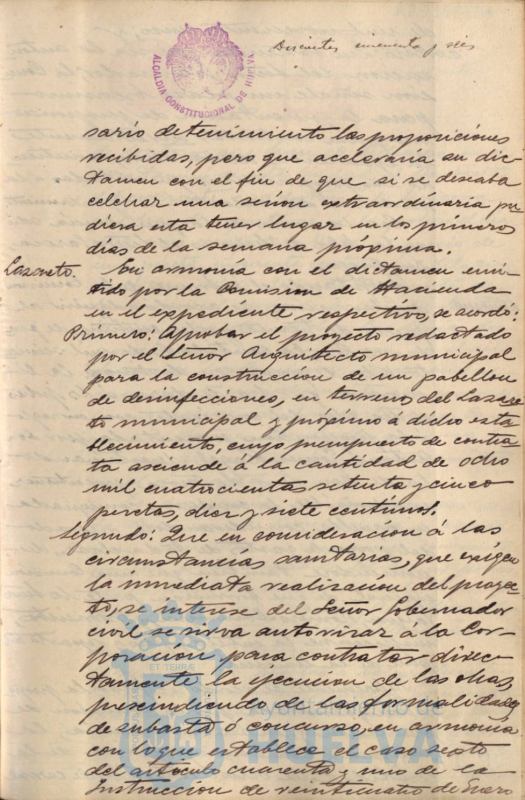 Doscientos cincuenta y seis
ALCALDIA CONSTITUCIONAL DE HUELVA
sario detenimiento las proposiciones
recibidas, pero que aceleraria su dic-
tamen con el fin de que si se deseaba
celebrar una sesion extraordinaria pu
diera esta tener lugar en los primeros
dias de la semana próxima.
Lazareto. En armonía con el dictamen emi
tido por la Comision de Hacienda
en el expediente respectivo, se acordó:
Primero: Aprobar el proyecto redactado
por el Señor Arquitecto municipal
para la construccion de un pabellon
de desinfecciones, en terrenos del Lazare
to municipal y próximo á dicho esta
blecimiento, cuyo presupuesto de contra
ta asciende á la cantidad de ocho
mil cuatrocientas setenta y cinco
pesetas, diez y siete centimos.
Segundo: Que en consideracion á las
circunstancias sanitarias, que exigen
la inmediata realizacion del proyec
to, se interese del Señor Gobernador
civil se sirva autorizar á la Cor-
poración para contratar direc-
tamente la ejecucion de las obras,
prescindiendo de las formalidades
de subasta ó concurso, en armonia
con lo que establece el caso sexto
del artículo cuarenta y uno de la
Instruccion de veinticuatro de Enero
ET TERRÆ
Ayuntamiento de
HUELVA